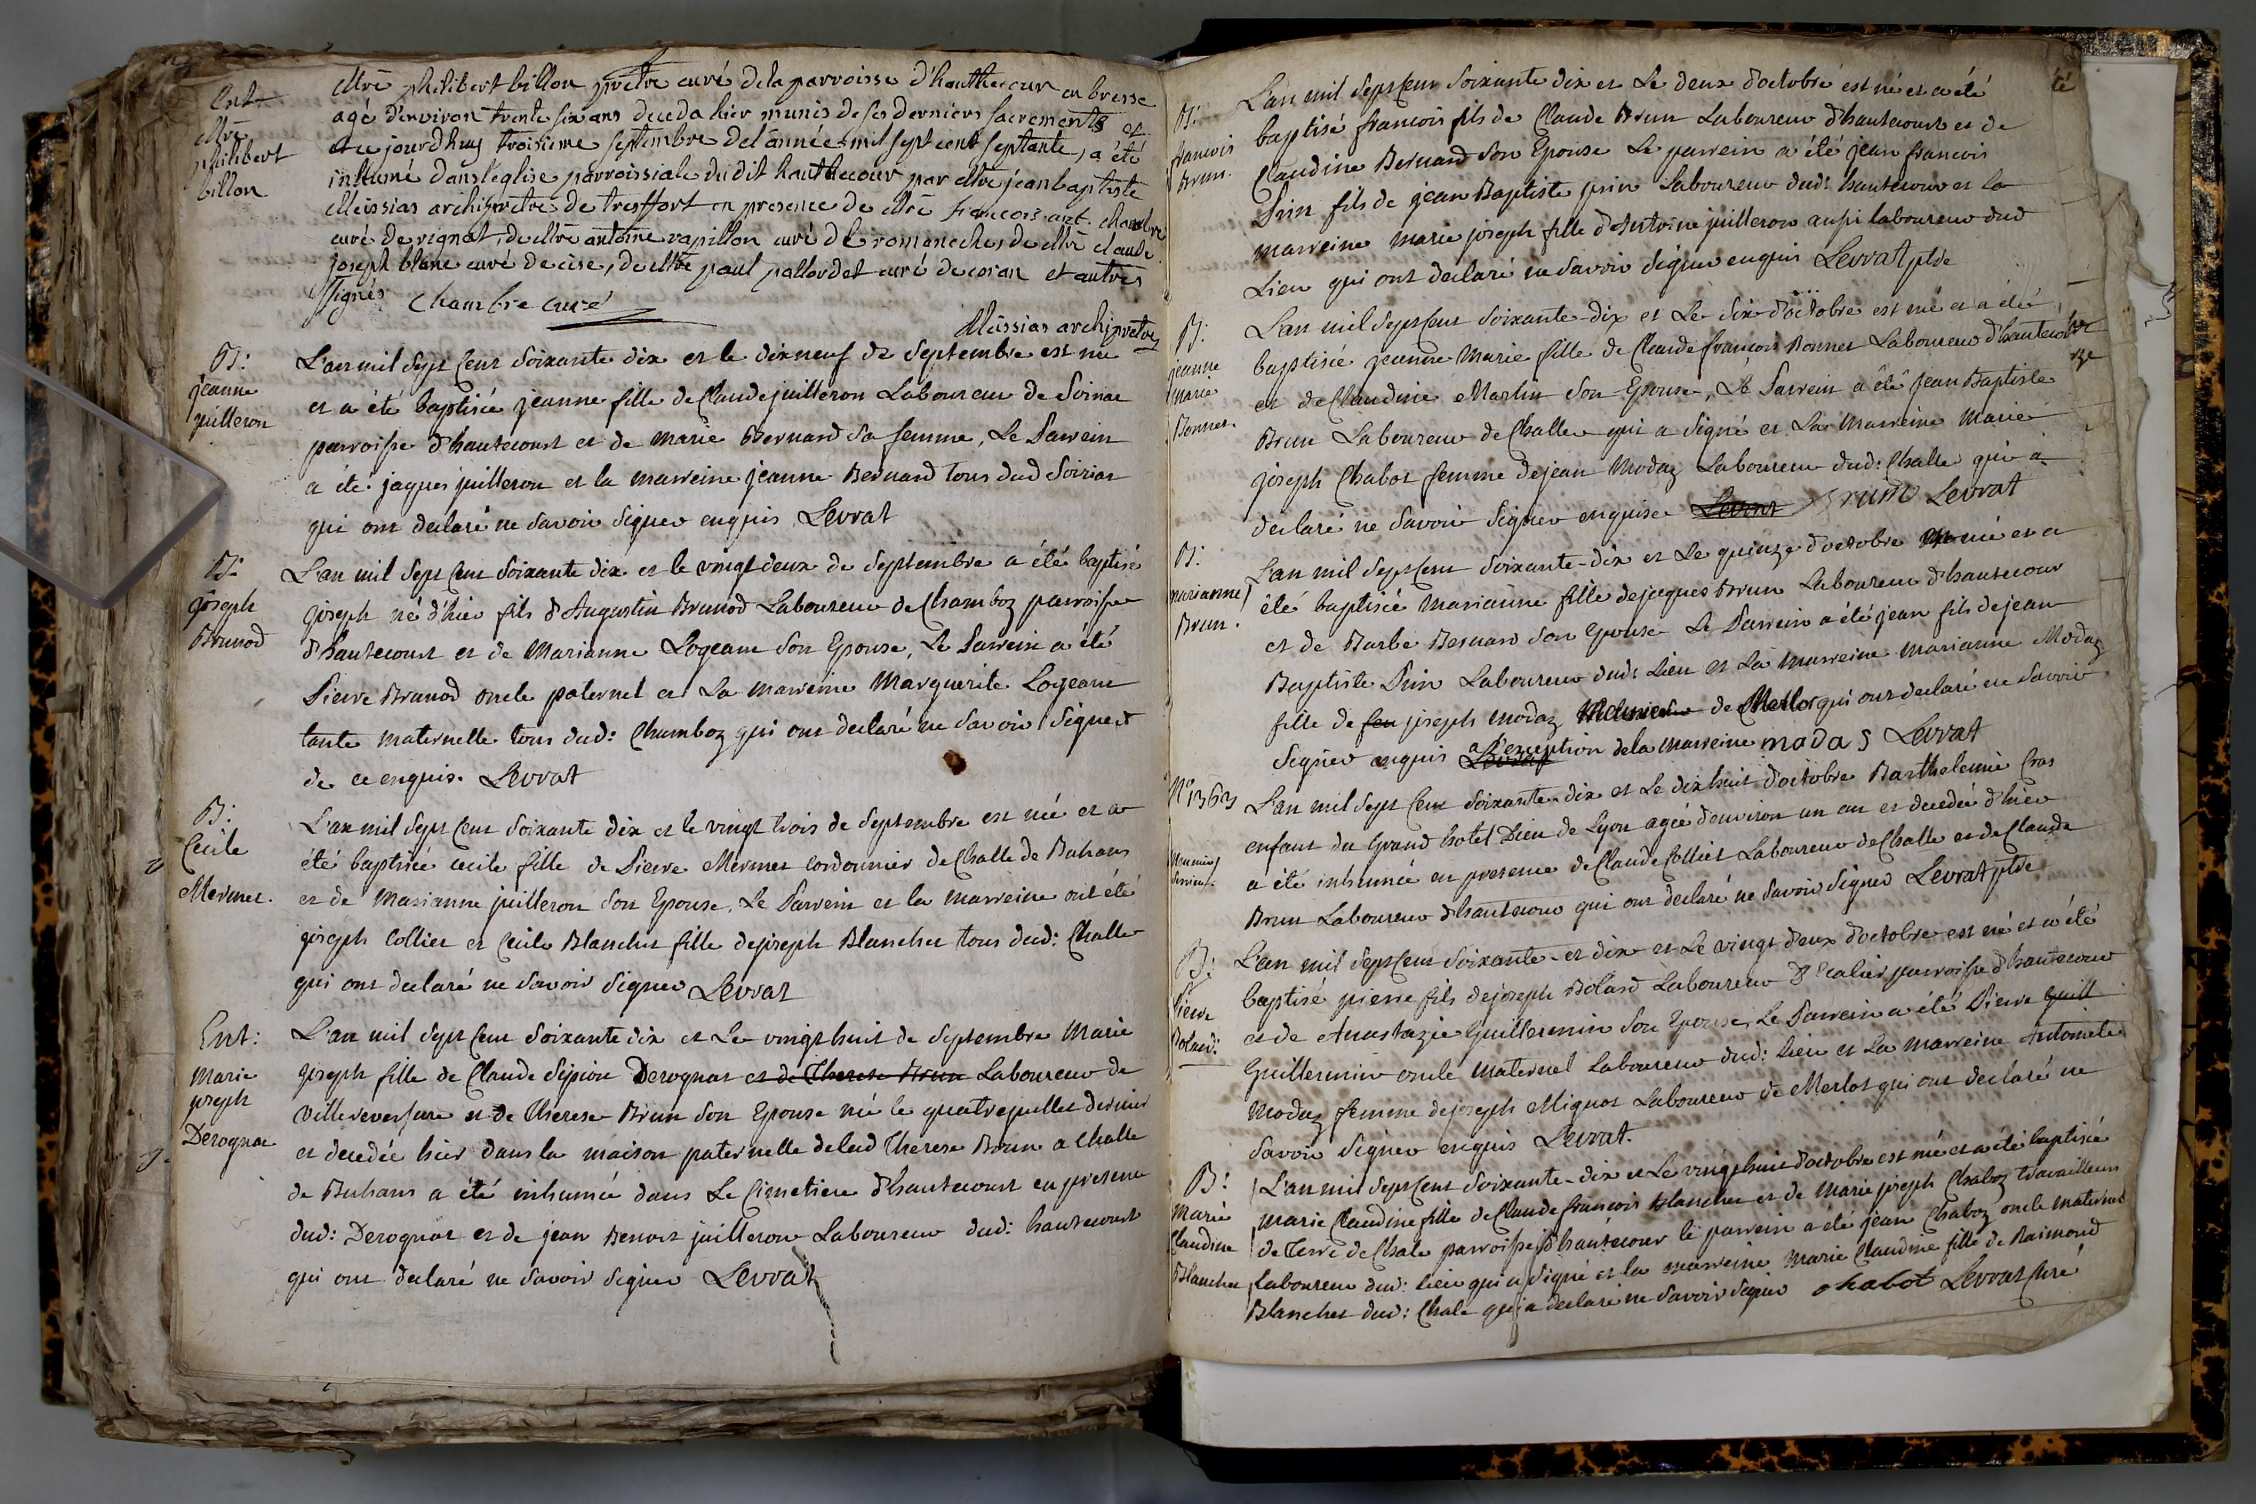 Ent.
Mre
philibert
billon
Mre philibert billon prêtre curé de la parroisse d'hauthecour en bresse
agé d'environ trente six ans deceda hier munis de ses derniers sacrements et
ce jourdhuy troisieme septembre de l'année mil sept cent septante, a été
inhumé dans l'église parroissiale dudit hauthecour par Mre jean baptiste
Meissias archiprêtre de treffort en presence de Mre francois ant. chambre
curé de rignat, de Mre antoine vapillon curé de romaneches, de Mre claude
joseph blanc curé de cise, de Mre paul pallordet curé de coran et autres
signés Chambre Curé
Meissias archiprêtre
B:
jeanne
juilleron
L'an mil sept cent soixante dix et le dixneuf de septembre est née
et a été baptisée jeanne fille de Claude juilleron Laboureur de Soiriat
parroisse d'hautecourt et de marie Bernard sa femme, Le Parrein
a été jaques juilleron et la marreine jeanne Bernard tous dud Soiriat
qui ont declaré ne savoir signer enquis Levrat
B:
joseph
Brunod
L'an mil sept cent soixante dix et le vingt deux de septembre a été baptisé
joseph né d'hier fils d'Augustin Brunod Laboureur de Chamboz parroisse
d'hautecourt et de Marianne Logeant son Epouse, Le Parrein a été
Pierre Brunod oncle paternel et La marreine Marguerite Logeant
tante maternelle tous dud: Chamboz qui ont declaré ne savoir signer
de ce enquis. Levrat
B:
Cecile
Mermet.
L'an mil sept cent soixante dix et le vingt trois de septembre est née et a
été baptisée cecile fille de Pierre Mermet cordonnier de Challe de Buhans
et de Marianne juilleron son Epouse. Le Parrein et la marreine ont été
joseph Collier et Cecile Blanchet fille de joseph Blanchet tous dud: Challe
qui ont declaré ne savoir signer Levrat
Ent:
Marie
joseph
Derognat
L'an mil sept cent soixante dix et Le vingt huit de septembre Marie
joseph fille de Claude Sipion Derognat et de Therese Brun Laboureur de
Villereversure et de Therese Brun son Epouse née le quatre juillet dernier
et decedée hier dans la maison paternelle de lad Therese Brun a Challe
de Buhans a été inhumée dans Le Cimetiere d'hautecourt en presence
dud: Derognat et de jean Benoit juilleron Laboureur dud: hautecourt
qui ont declaré ne savoir signer Levrat
B:
francois
Brun.
L'an mil sept cent soixante dix et Le deux d'octobre est né et a été
baptisé francois fils de Claude Brun Laboureur d'hautecourt et de
Claudine Bernard son Epouse Le parrein a été jean francois
Prin fils de jean Baptiste prin Laboureur dud: hautecour et la
marreine marie joseph fille d'Antoine juilleron aussi laboureur dud
Lieu qui ont declaré ne savoir signer enquis Levrat ptre
B:
jeanne
marie
Bonnet.
L'an mil sept cent soixante-dix et Le six d'octobre est née et a été
baptisée jeanne Marie fille de Claude francois Bonnet Laboureur d'hautecour
et de Claudine Martin son Epouse, Le Parrein a été jean Baptiste
Brun Laboureur de Challe qui a signé et La Marreine Marie
joseph Chabot femme de jean Modaz Laboureur dud: Challe qui a
declaré ne savoir signer enquise Levrat Brun Levrat
B:
marianne
Brun.
L'an mil sept cent soixante-dix et Le quinze d'octobre née et a
été baptisée Marianne fille de jaques Brun Laboureur d'hautecour
et de Barbe Bernard son Epouse Le Parrein a été jean fils de jean
Baptiste Prin Laboureur dud: Lieu et La marreine marianne Modaz
fille de feu joseph modaz de Merlot qui ont declaré ne savoir
signer enquis Levrat a l'exception de la marreine modas Levrat
N° 1363
L'an mil sept cent soixante-dix et Le dixhuit d'octobre Barthelemie Cras
enfant du Grand hotel Dieu de Lyon agée d'environ un an et decedée d'hier
a été inhumée en presence de Claude Collier Laboureur de Challe et de Claude
Brun Laboureur d'hautecour qui ont declaré ne savoir signer Levrat ptre
B:
Pierre
Bolard:
L'an mil sept cent soixante-et dix et Le vingt deux d'octobre est né et a été
baptisé pierre fils de joseph Bolard Laboureur d'Ecalier parroisse d'hautecour
et de Anastazie Guillermin son Epouse, Le Parrein a été Pierre guill
Guillermin oncle maternel Laboureur dud: lieu et La marreine Antoinete
Modaz femme de joseph Mignot Laboureur de Merlot qui ont declaré ne
savoir signer enquis Levrat.
B:
Marie
Claudine
Blanchet
L'an mil sept cent soixante-dix et Le vingt huit d'octobre est née et a été baptisée
marie Claudine fille de Claude francois Blanchet et de Marie joseph Chaboz travailleurs
de Terre de Chale parroisse d'hautecour le parrein a été jean Chaboz oncle maternel
Laboureur dud: lieu qui a signé et la marreine marie Claudine fille de Raimond
Blanchet dud: Chale qui a declaré ne savoir signer chabot Levrat Curé